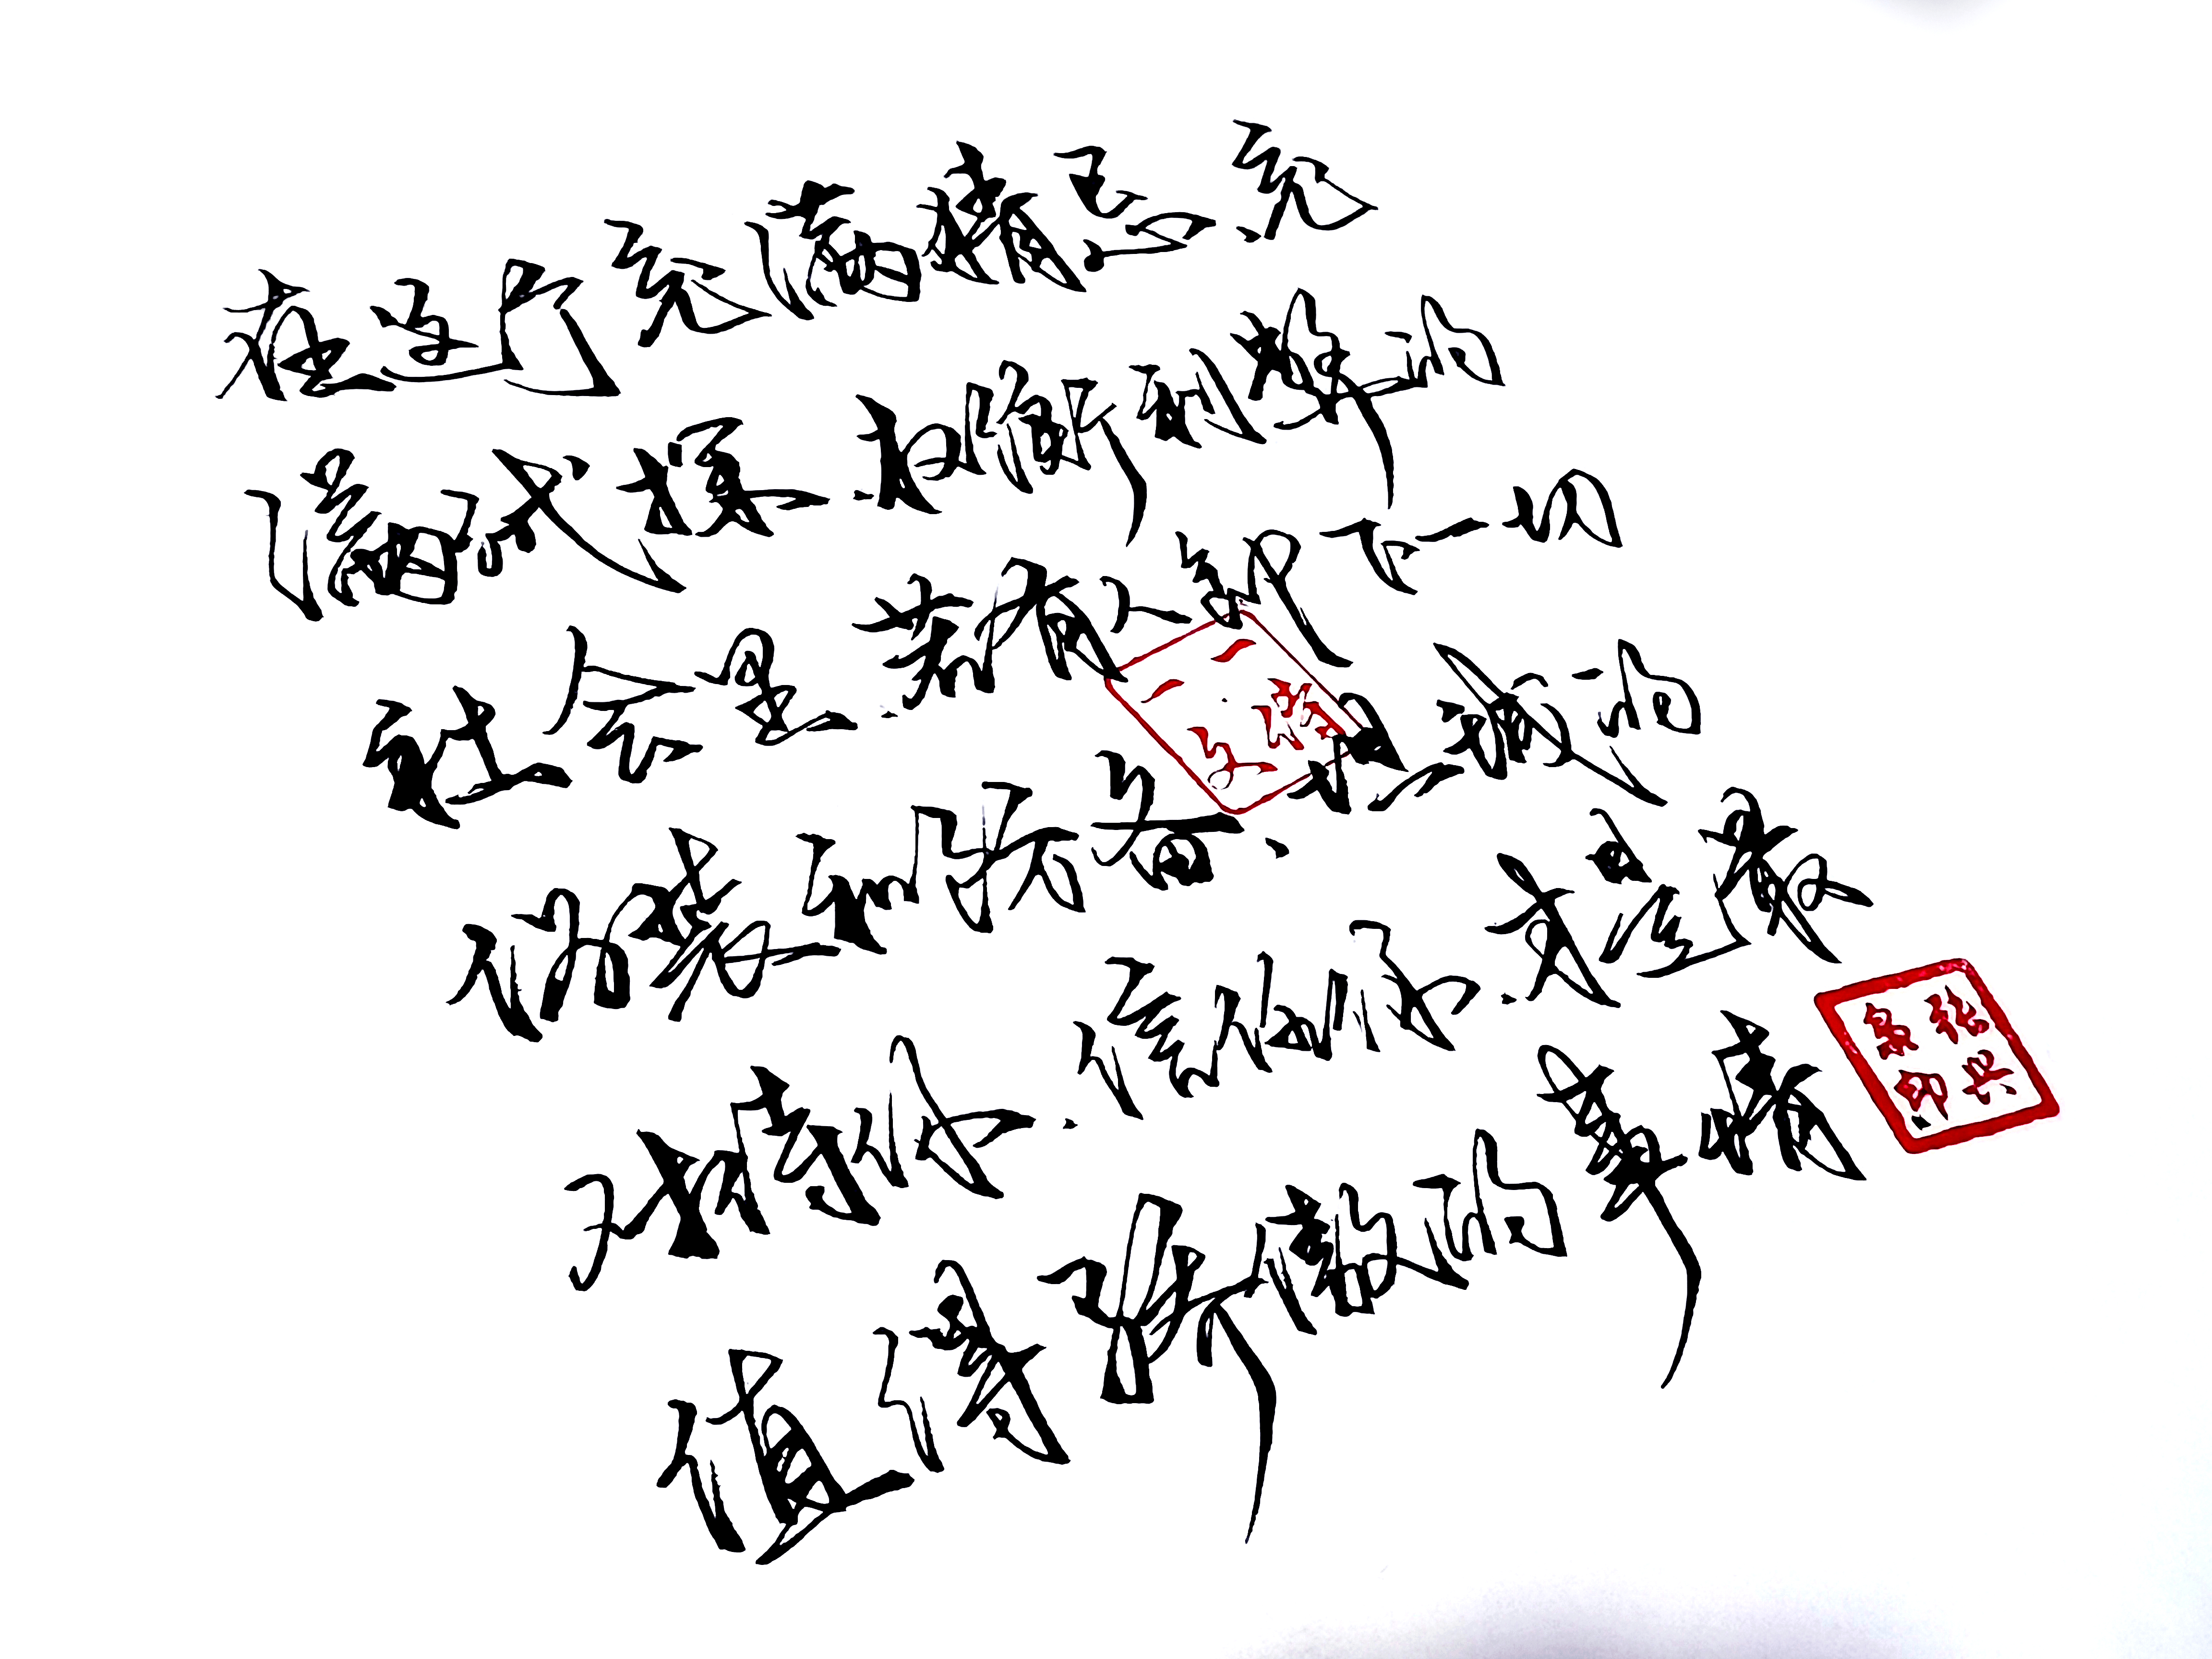 在这个充满猜忌、充
满试探、权衡利弊的
社会里、若有人卸下一切
伪装和防备、把温顺的
对待你、信任你、才是最
值得骄傲的事情
张兴
印